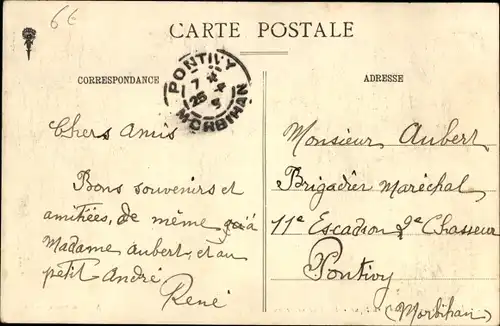 6€
CARTE POSTALE
CORRESPONDANCE
PONTIVY
MORBIHAN
ADRESSE
Chers Amis
Bons souvenirs et
amitiées, de même qu'à
Madame Aubert, et au
petit André
René
Monsieur Aubert
Brigadier Maréchal
11e Escadron 2e Chasseur
Pontivy
(Morbihan)